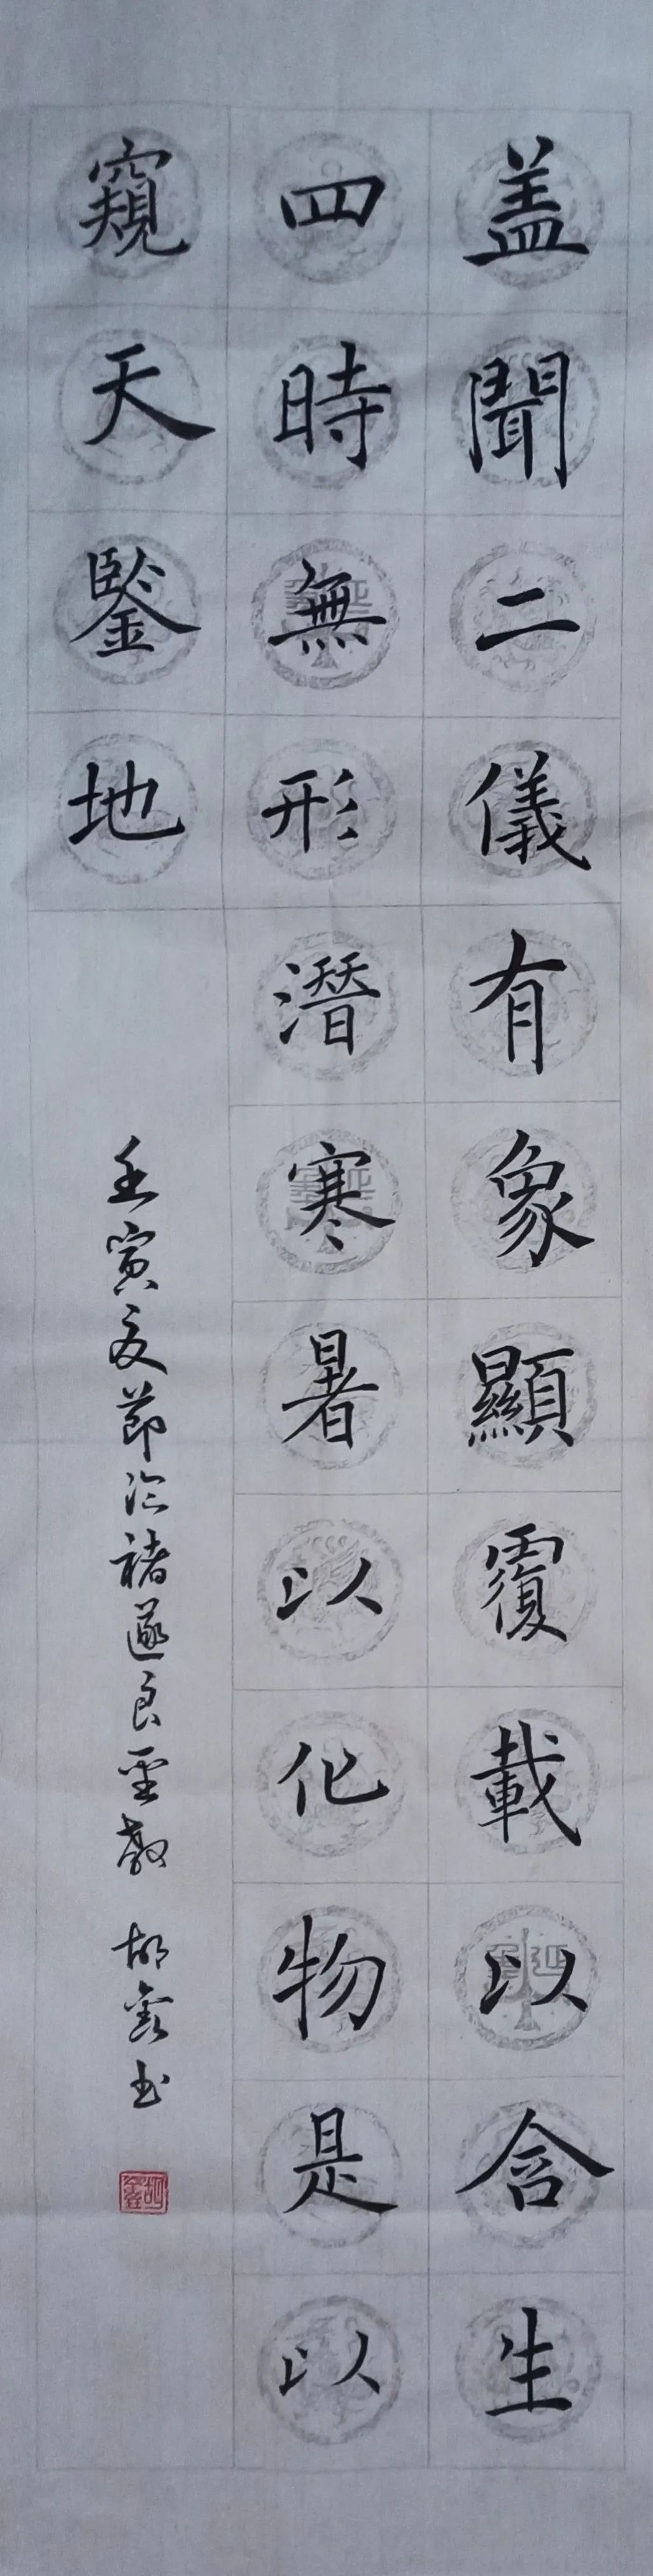 盖聞二儀有象顯覆載以含生
四時無形潛寒暑以化物是以
窺天鑒地
壬寅夏節臨褚遂良聖教 胡鑫书
胡鑫